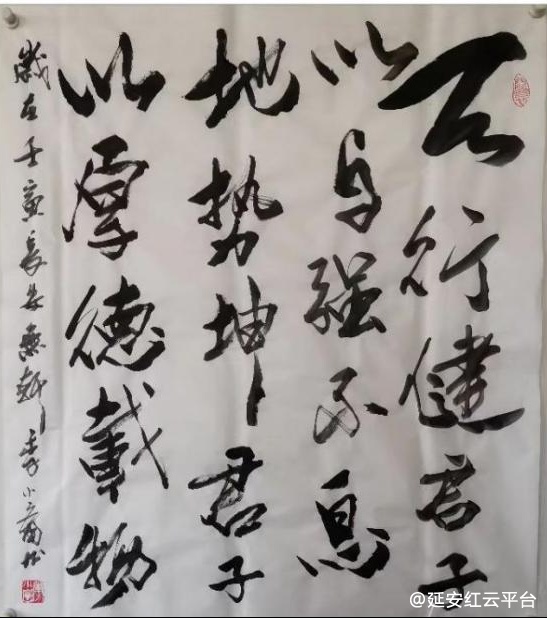 天行健君子
以自强不息
地势坤君子
以厚德载物
岁在壬寅
@延安红云平台